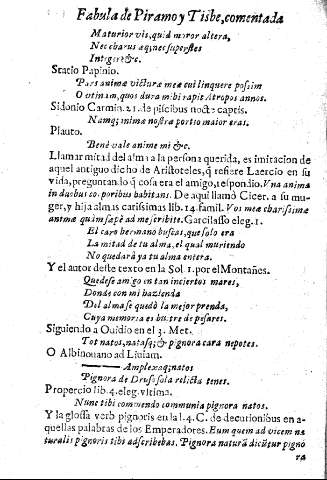 Fabula de Piramo y Tisbe, comentada
Maturior vis, quid moror altera,
Nec charus æq; nec superstes
Integer &c.
Statio Papinio.
Pars animæ victuræ meæ cui linquere possim
O utinam, quos dura mihi rapit Atropos annos.
Sidonio Carmin. 21. de piscibus nocte captis.
Namq; animæ nostræ portio maior eras.
Plauto.
Benè vale anime mi &c.
Llamar mitad del alma a la persona querida, es imitacion de
aquel antiguo dicho de Aristoteles, q̃ refiere Laercio en su
vida, preguntando q̃ cosa era el amigo, respondio. Vna anima
in duobus corporibus habitans. De aqui llamò Cicer. a su mu-
ger, y hija almas carissimas lib. 14. famil. Vos meæ charissimæ
animæ quàm sæpè ad me scribite. Garcilasso eleg. 1.
El caro hermano buscas, que solo era
La mitad de tu alma, el qual muriendo
No quedarà ya tu alma entera.
Y el autor deste texto en la Sol. 1. por el Montañes.
Quedese amigo en tan inciertos mares,
Donde con mi hazienda
Del alma se quedò la mejor prenda,
Cuya memoria es buitre de pesares.
Siguiendo a Ouidio en el 3. Met.
Tot natos, natasq; & pignora cara nepotes.
O Albinouano ad Liuiam.
Amplexaq; natos
Pignora de Druso sola relicta tenet.
Propercio lib. 4. eleg. vltima.
Nunc tibi commendo communia pignora natos.
Y la glossa verb pignoris en la l. 4. C. de decutionibus en a-
quellas palabras de los Emperadores. Eum quem ad vicem na
turalis pignoris tibi adscribebas. Pignora naturã dicũtur pigno
ra